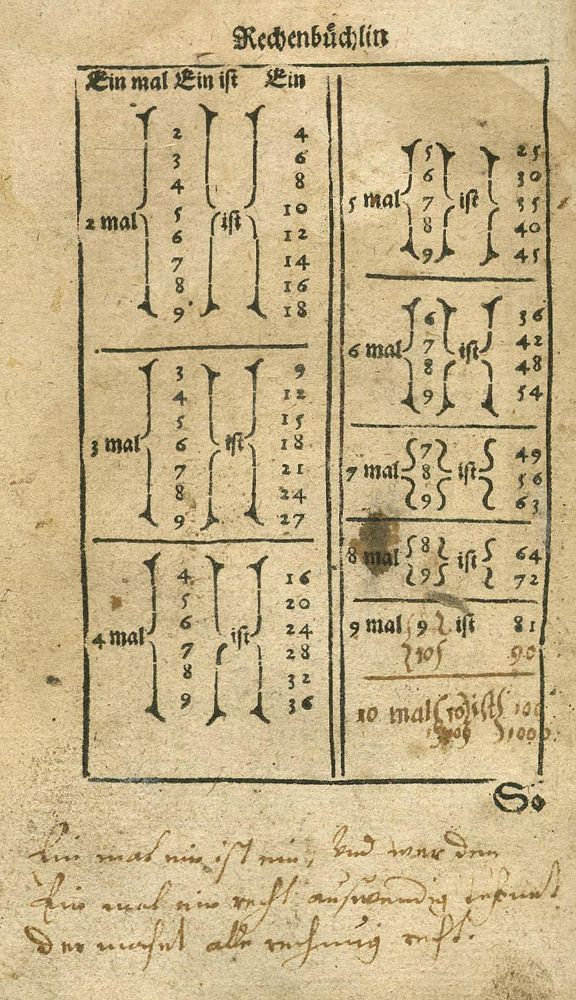 Rechenbüchlin
Ein mal Ein ist Ein
2 4
3 6
4 8
5 10
2 mal ist
6 12
7 14
8 16
9 18
3 9
4 12
5 15
3 mal 6 ist 18
7 21
8 24
9 27
4 16
5 20
6 24
4 mal ist
7 28
8 32
9 36
5 25
6 30
5 mal 7 ist 35
8 40
9 45
6 36
6 mal 7 ist 42
8 48
9 54
7 49
7 mal 8 ist 56
9 63
8 mal 8 ist 64
9 72
9 mal 9 ist 81
10 90
10 mal 10 ist 100
1000
So
Ein mal ein ist ein, Und wer den
Ein mal ein recht auswendig
der machet alle rechnung recht.